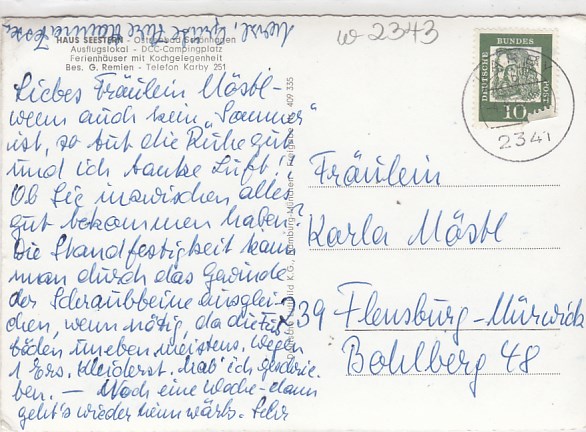 w 2343
HAUS SEESTERN - Ostseebad Schönhagen
Ausflugslokal - DCC-Campingplatz
Ferienhäuser mit Kochgelegenheit
Bes. G. Remien - Telefon Karby 251
Liebes Fräulein Möstl -
wenn auch kein "Sommer"
ist, so tut die Ruhe gut
und ich tanke Luft!
Ob Sie inzwischen alles
gut bekommen haben?
Die Standfestigkeit kann
man durch das Gewinde
der Schraubbeine ausglei-
chen, wenn nötig, da die Fuß
böden uneben meistens. Wegen
1 Ers. Kleiderst. hab' ich geschrie
ben. — Noch eine Woche - dann
geht's wieder heimwärts. Sehr
herzl. Grüße Ihre
409 335
DEUTSCHE BUNDESPOST
10
2341
Fräulein
Karla Möstl
239 Flensburg-Mürwick
Bohlberg 48